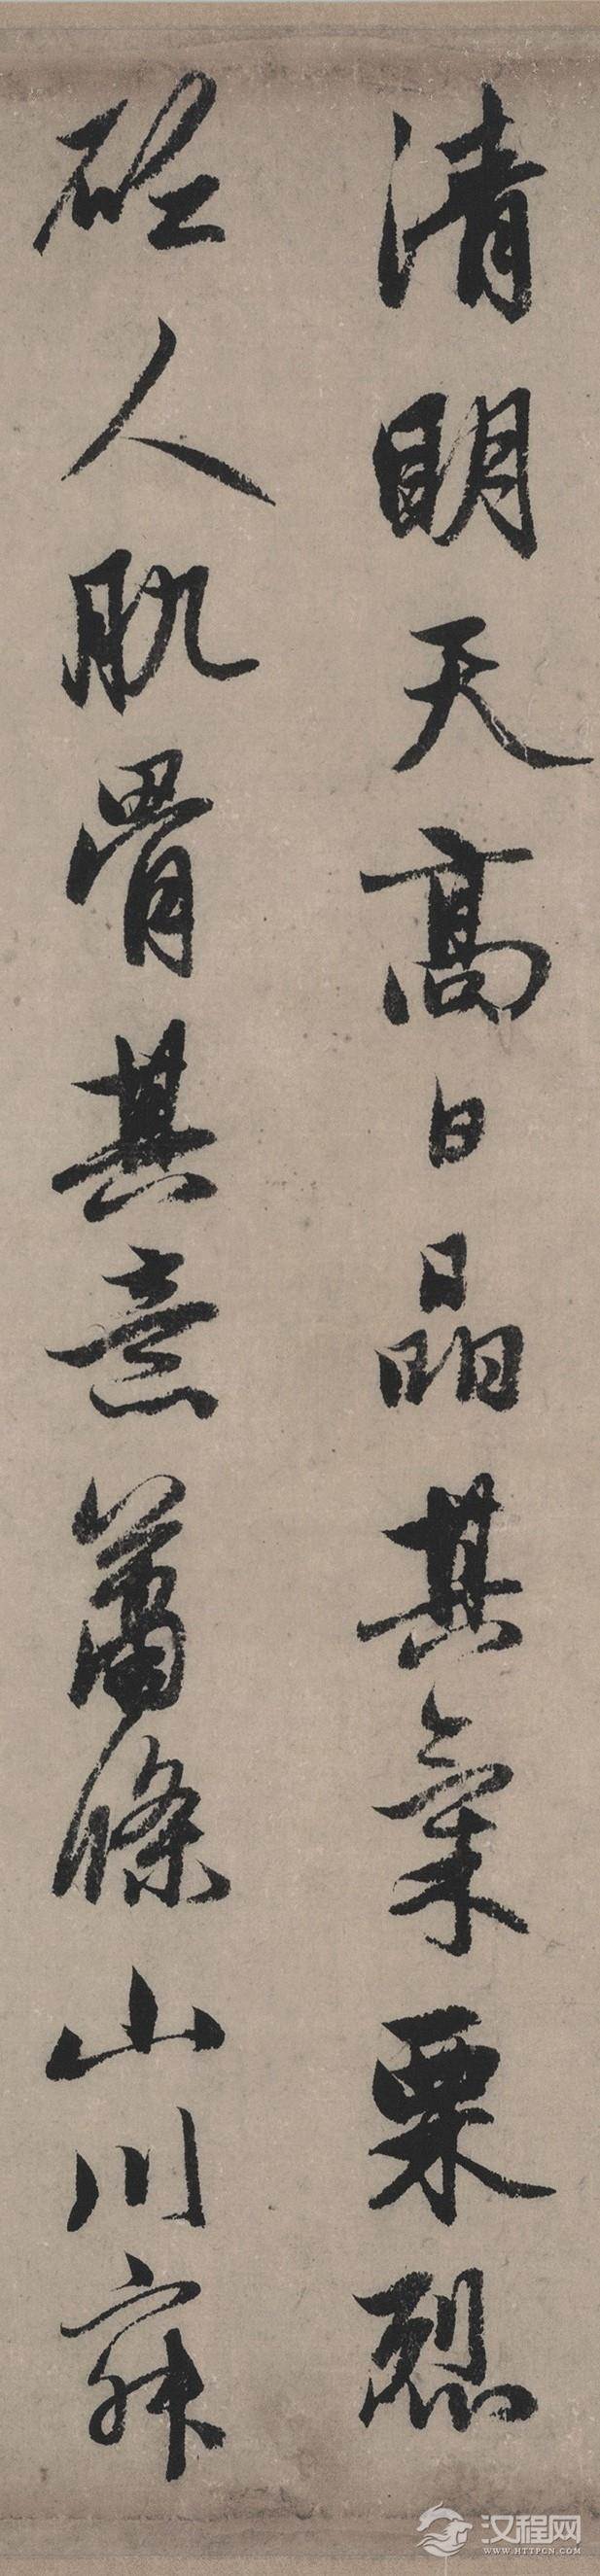 清明天高日晶其氣栗烈
砭人肌骨其意蕭條山川寂
汉程网
WWW.HTTPCN.COM